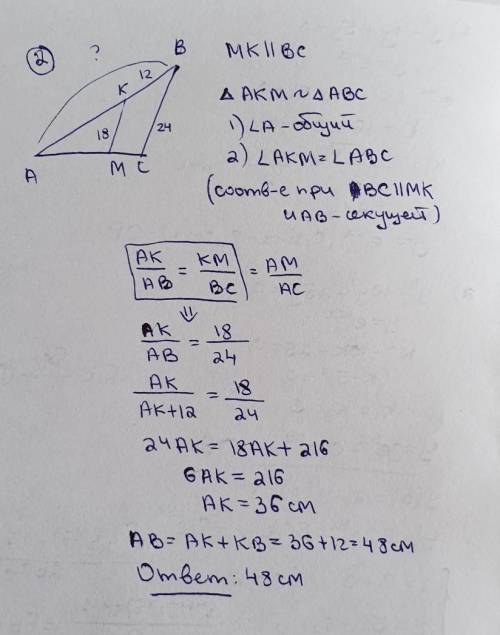 2
?
B
MK||BC
12
K
△AKM ~ △ABC
18
24
1) ∠A - общий
A
M C
2) ∠AKM = ∠ABC
(соотв-е при BC||MK
и AB - секущей)
AK/AB = KM/BC = AM/AC
⇓
AK/AB = 18/24
AK/AK+12 = 18/24
24AK = 18AK + 216
6AK = 216
AK = 36 см
AB = AK + KB = 36 + 12 = 48 см
Ответ: 48 см